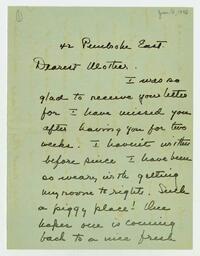 42 Pembroke East.
Dearest Mother.
I was so
glad to receive your letter
for I have missed you
after having you for two
weeks. I haven't written
before since I have been
so weary with getting
my room to rights. Such
a piggy place! One
hopes one is coming
back to a nice fresh